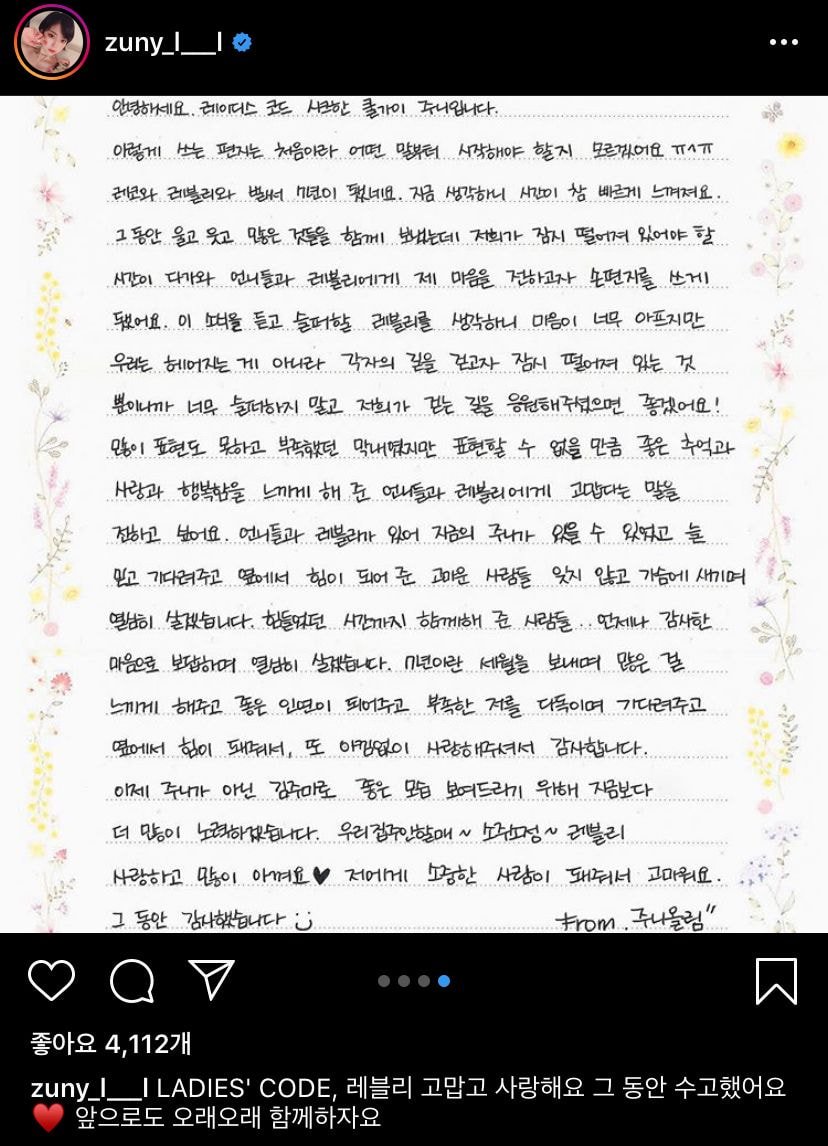 zuny_l___l
안녕하세요. 레이디스 코드 시크한 쿨가이 주니입니다.
이렇게 쓰는 편지는 처음이라 어떤 말부터 시작해야 할지 모르겠어요 ㅠ^ㅠ
레코와 레블리와 벌써 7년이 됐네요. 지금 생각하니 시간이 참 빠르게 느껴져요.
그동안 울고 웃고 많은 것들을 함께 보냈는데 저희가 잠시 떨어져 있어야 할
시간이 다가와 언니들과 레블리에게 제 마음을 전하고자 손편지를 쓰게
됐어요. 이 소식을 듣고 슬퍼할 레블리를 생각하니 마음이 너무 아프지만
우리는 헤어지는 게 아니라 각자의 길을 걷고자 잠시 떨어져 있는 것
뿐이니까 너무 슬퍼하지 말고 저희가 걷는 길을 응원해주셨으면 좋겠어요!
많이 표현도 못하고 부족했던 막내였지만 표현할 수 없을 만큼 좋은 추억과
사랑과 행복함을 느끼게 해 준 언니들과 레블리에게 고맙다는 말을
전하고 싶어요. 언니들과 레블리가 있어 지금의 주니가 있을 수 있었고 늘
믿고 기다려주고 옆에서 힘이 되어 준 고마운 사람들 잊지 않고 가슴에 새기며
열심히 살겠습니다. 힘들었던 시간까지 함께해 준 사람들.. 언제나 감사한
마음으로 보답하며 열심히 살겠습니다. 7년이란 세월을 보내며 많은 걸
느끼게 해주고 좋은 인연이 되어주고 부족한 저를 다독이며 기다려주고
옆에서 힘이 돼줘서, 또 아낌없이 사랑해주셔서 감사합니다.
이제 주니가 아닌 김주미로 좋은 모습 보여드리기 위해 지금보다
더 많이 노력하겠습니다. 우리집주인할매~ 소주소정~ 레블리
사랑하고 많이 아껴요♥ 저에게 소중한 사람이 돼줘서 고마워요.
그 동안 감사했습니다 :)
From. 주니올림"
좋아요 4,112개
zuny_l___l LADIES' CODE, 레블리 고맙고 사랑해요 그 동안 수고했어요
♥️ 앞으로도 오래오래 함께하자요